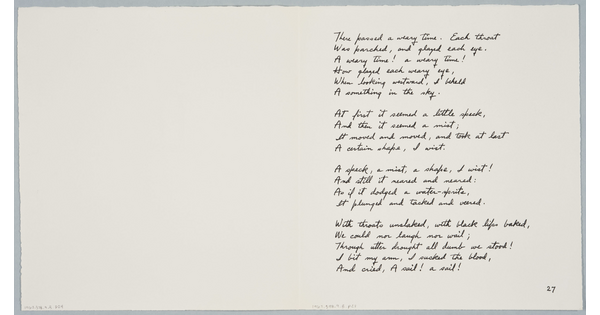 There passed a weary time. Each throat
Was parched, and glazed each eye.
A weary time! a weary time!
How glazed each weary eye,
When looking westward, I beheld
A something in the sky.
At first it seemed a little speck,
And then it seemed a mist;
It moved and moved, and took at last
A certain shape, I wist.
A speck, a mist, a shape, I wist!
And still it neared and neared:
As if it dodged a water-sprite,
It plunged and tacked and veered.
With throats unslaked, with black lips baked,
We could nor laugh nor wail;
Through utter drought all dumb we stood!
I bit my arm, I sucked the blood,
And cried, A sail! a sail!
27